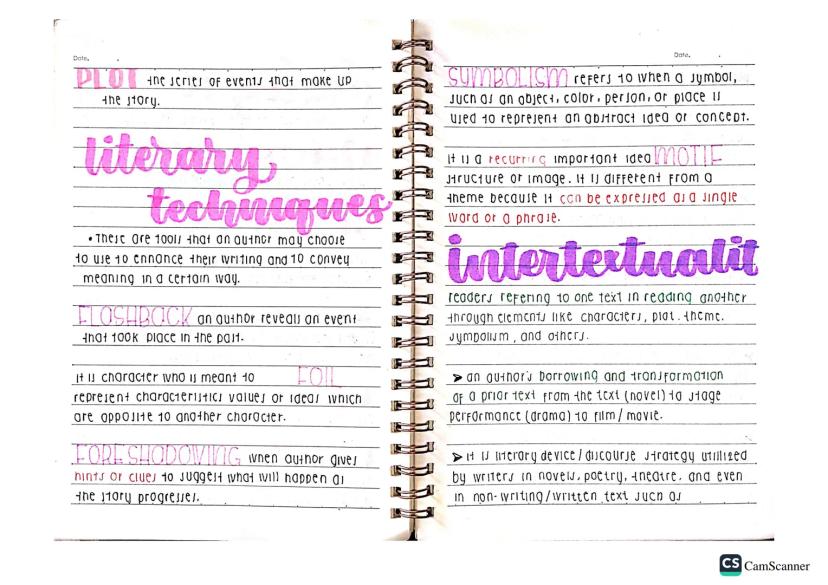 Date.
PLOT the series of events that make up
the story.
literary
techniques
• These are tools that an author may choose
to use to enhance their writing and to convey
meaning in a certain way.
FLASHBACK an author reveals an event
that took place in the past.
it is character who is meant to FOIL
represent characteristics values or ideas which
are opposite to another character.
FORESHADOWING when author gives
hints or clues to suggest what will happen as
the story progresses.
Date.
SYMBOLISM refers to when a symbol,
such as an object, color, person, or place is
used to represent an abstract idea or concept.
it is a recurring important idea MOTIF
structure or image. it is different from a
theme because it can be expressed as a single
word or a phrase.
intertextualit
readers refering to one text in reading another
through elements like characters, plot. theme.
symbolism, and others.
➤ an author's borrowing and transformation
of a prior text from the text (novel) to stage
performance (drama) to film/movie.
➤ it is literary device/discourse strategy utilized
by writers in novels, poetry, theatre. and even
in non-writing/written text such as
CS CamScanner